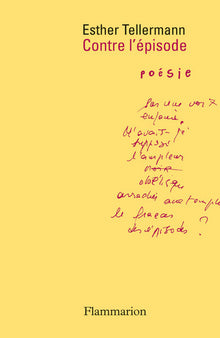 Esther Tellermann
Contre l'épisode
poésie
Par une voix
enfouie.
N'avait-je
supposé
l'ampleur
obélisque
arraché au temple
le fracas
des épisodes ?
Flammarion